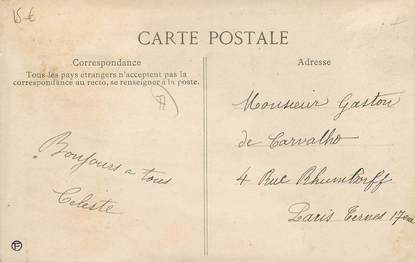 15€
CARTE POSTALE
Correspondance
Tous les pays étrangers n'acceptent pas la
correspondance au recto, se renseigner à la poste.
Adresse
Bonjours a tous
Celeste
Monsieur Gaston
de Carvalho
4 Rue Rhumkorff
Paris Ternes 17em